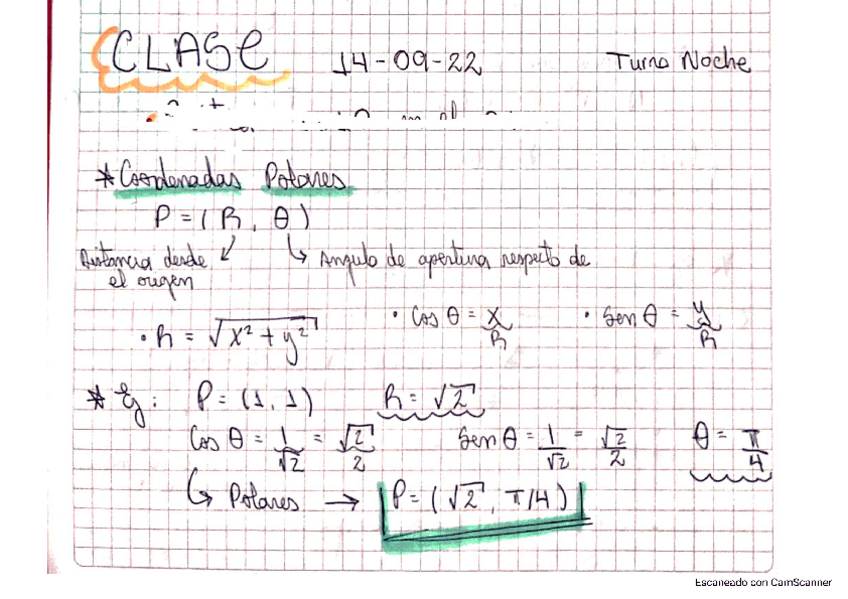 CLASE 14-09-22 Turno Noche
* Coordenadas Polares
P = (R, θ)
Distancia desde el origen
Angulo de apertura respecto de
• R = √x² + y²
• Cos θ = x/R
• Sen θ = y/R
* Ej: P = (1, 1) R = √2
Cos θ = 1/√2 = √2/2 Sen θ = 1/√2 = √2/2 θ = π/4
↳ Polares → P = (√2, π/4)
Escaneado con CamScanner